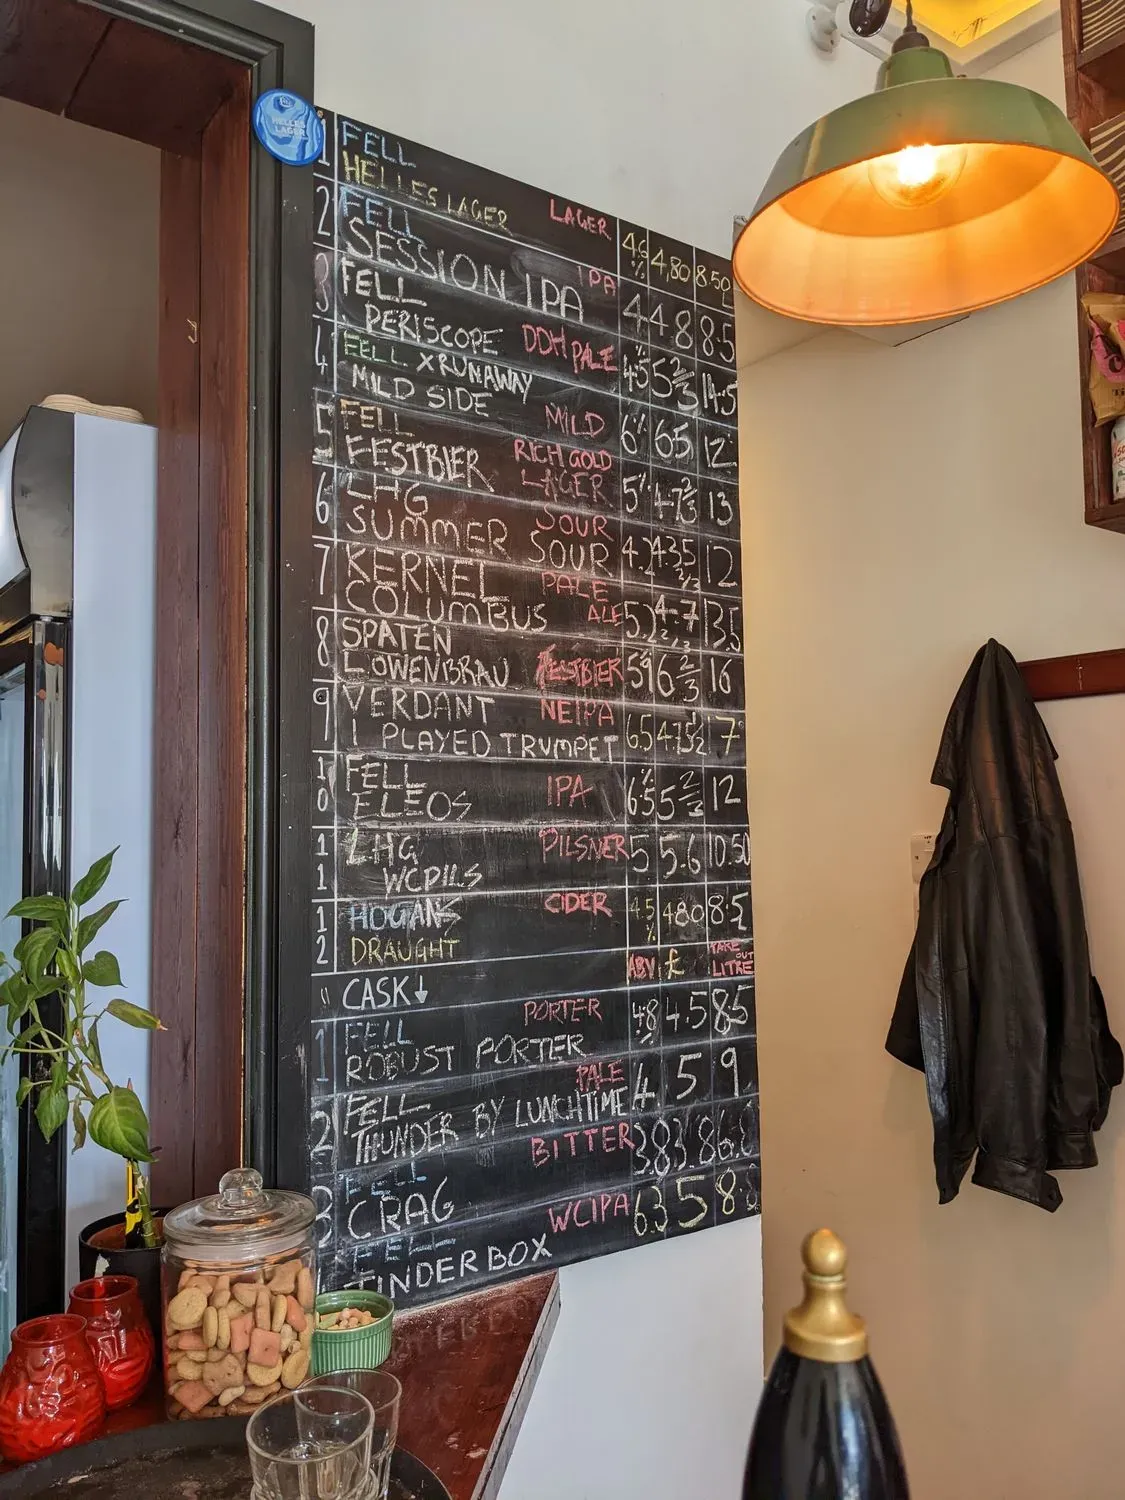 HELLES
LAGER
1 FELL
HELLES LAGER LAGER 4.6% 4,80 8.50
2 FELL IPA
SESSION IPA 4 4.8 8.5
3 FELL
PERISCOPE DDH PALE 4.5% 5 2/3 14.5
4 FELL X RUNAWAY
MILD SIDE MILD 6% 65 12
5 FELL RICH GOLD
FESTBIER LAGER 5% 4.7 2/3 13
6 LHG SOUR
SUMMER SOUR 4.2 4.35 12
7 KERNEL PALE
COLUMBUS ALE 5.2 4.7 2/3 13.5
8 SPATEN
LOWENBRAU FESTBIER 5.9 6 2/3 16
9 VERDANT NEIPA
I PLAYED TRUMPET 6.5 4.75 1/2 17
10 FELL IPA
ELEOS 6.5% 5 2/3 12
11 LHG PILSNER 5 5.6 10.50
WCPILS
12 HOGANS CIDER 4.5% 4.80 8.5
DRAUGHT
" CASK↓ ABV £ TAKE OUT LITRE
1 FELL PORTER 4.8% 4.5 8.5
ROBUST PORTER
2 FELL PALE 4 5 9
THUNDER BY LUNCHTIME
3 FELL BITTER 3.8 3.8 6.0
CRAG
FELL WCIPA 6.3 5 8.
TINDERBOX